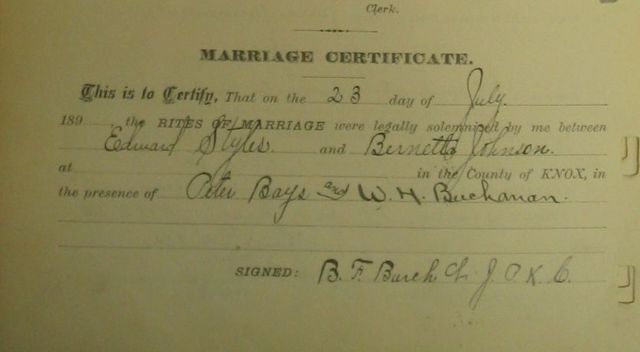 Clerk.
MARRIAGE CERTIFICATE.
This is to Certify, That on the 23 day of July.
189 the RITES OF MARRIAGE were legally solemnized by me between
Edward Styles. and Bernetta Johnson.
at in the County of KNOX, in
the presence of Peter Bays and W. H. Buchanan.
SIGNED: B. F. Burch J. O. K. C.